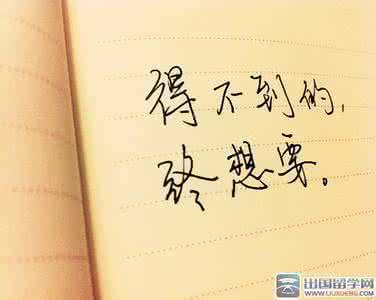 得不到的,
终想要。
出国留学网
WWW.LIUXUE86.COM